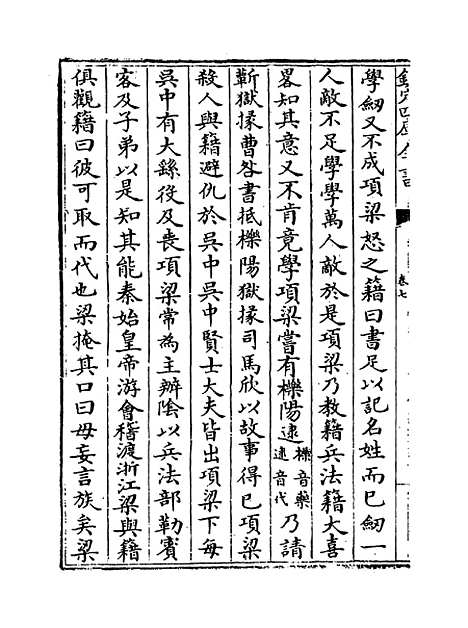 欽定四庫全書
卷七
學劒又不成項梁怒之籍曰書足以記名姓而已劒一
人敵不足學學萬人敵於是項梁乃教籍兵法籍大喜
畧知其意又不肯竟學項梁嘗有櫟陽逮櫟音藥逮音代乃請
蘄獄掾曹咎書抵櫟陽獄掾司馬欣以故事得已項梁
殺人與籍避仇於吳中吳中賢士大夫皆出項梁下每
吳中有大繇役及喪項梁常為主辦陰以兵法部勒賓
客及子弟以是知其能秦始皇帝游會稽渡浙江梁與籍
俱觀籍曰彼可取而代也梁掩其口曰毋妄言族矣梁